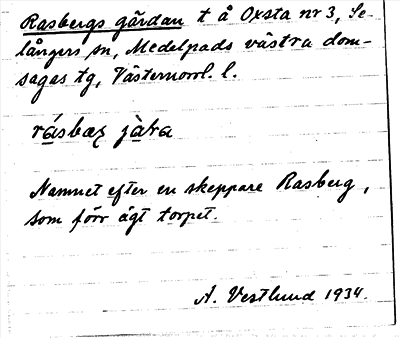 Rasbergs gårdan t å Oxsta nr 3, Se-
långers sn, Medelpads västra dom-
sagas tg, Västernorrl. l.
rásbaꭓ jàra
Namnet efter en skeppare Rasberg,
som förr ägt torpet.
A. Vestlund 1934.